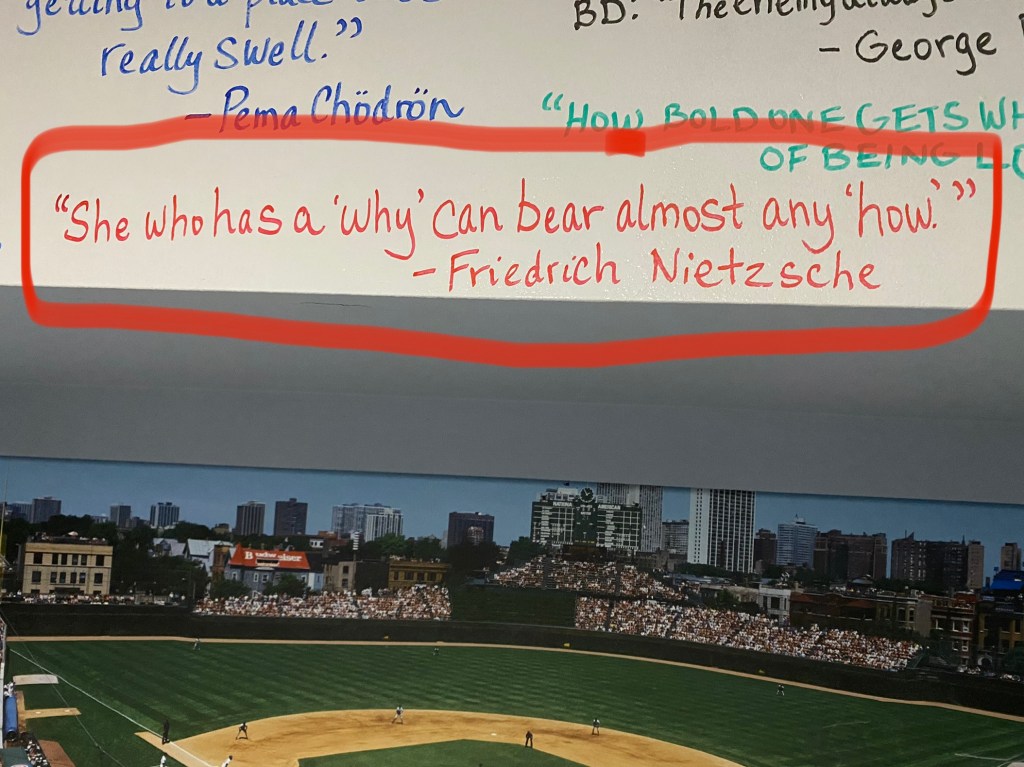 really swell.”
– Pema Chödrön
BD: “The enemy always
– George
“HOW BOLD ONE GETS WH
OF BEING LO
“She who has a ‘why’ can bear almost any ‘how.’”
– Friedrich Nietzsche
Budweiser